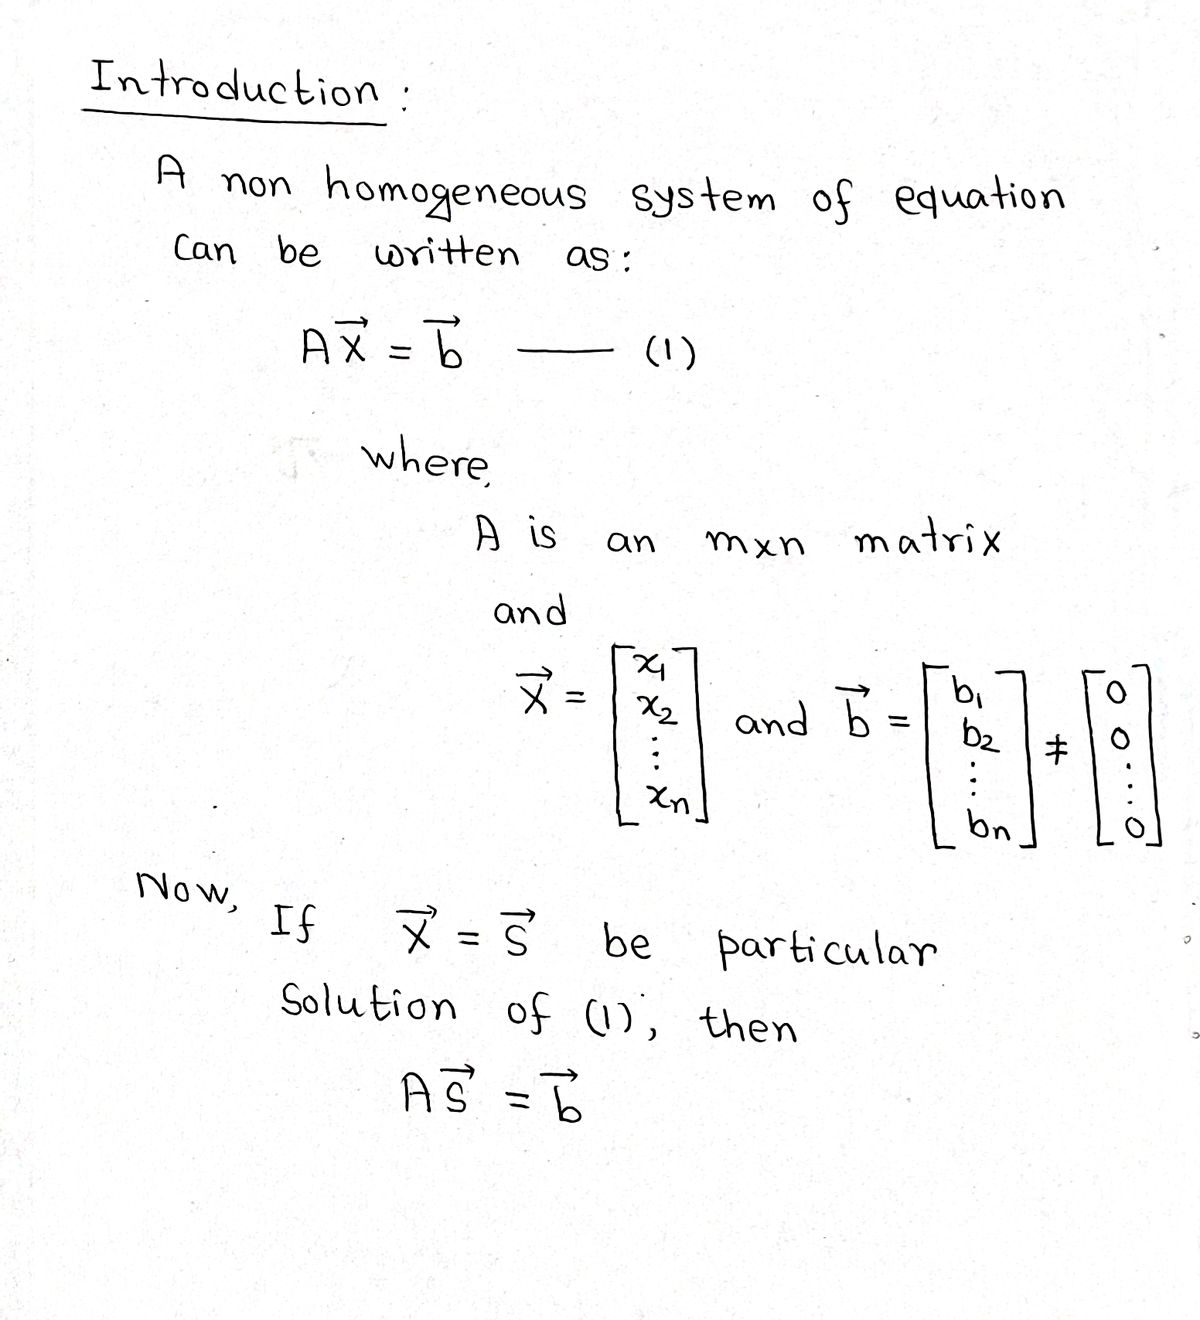 Introduction :
A non homogeneous system of equation
can be written as :
A\vec{x} = \vec{b} —— (1)
where,
A is an m×n matrix
and
\vec{x} = \begin{bmatrix} x_1 \\ x_2 \\ \vdots \\ x_n \end{bmatrix} and \vec{b} = \begin{bmatrix} b_1 \\ b_2 \\ \vdots \\ b_n \end{bmatrix} ≠ \begin{bmatrix} 0 \\ 0 \\ \vdots \\ 0 \end{bmatrix}
Now,
If \vec{x} = \vec{s} be particular
Solution of (1), then
A\vec{s} = \vec{b}